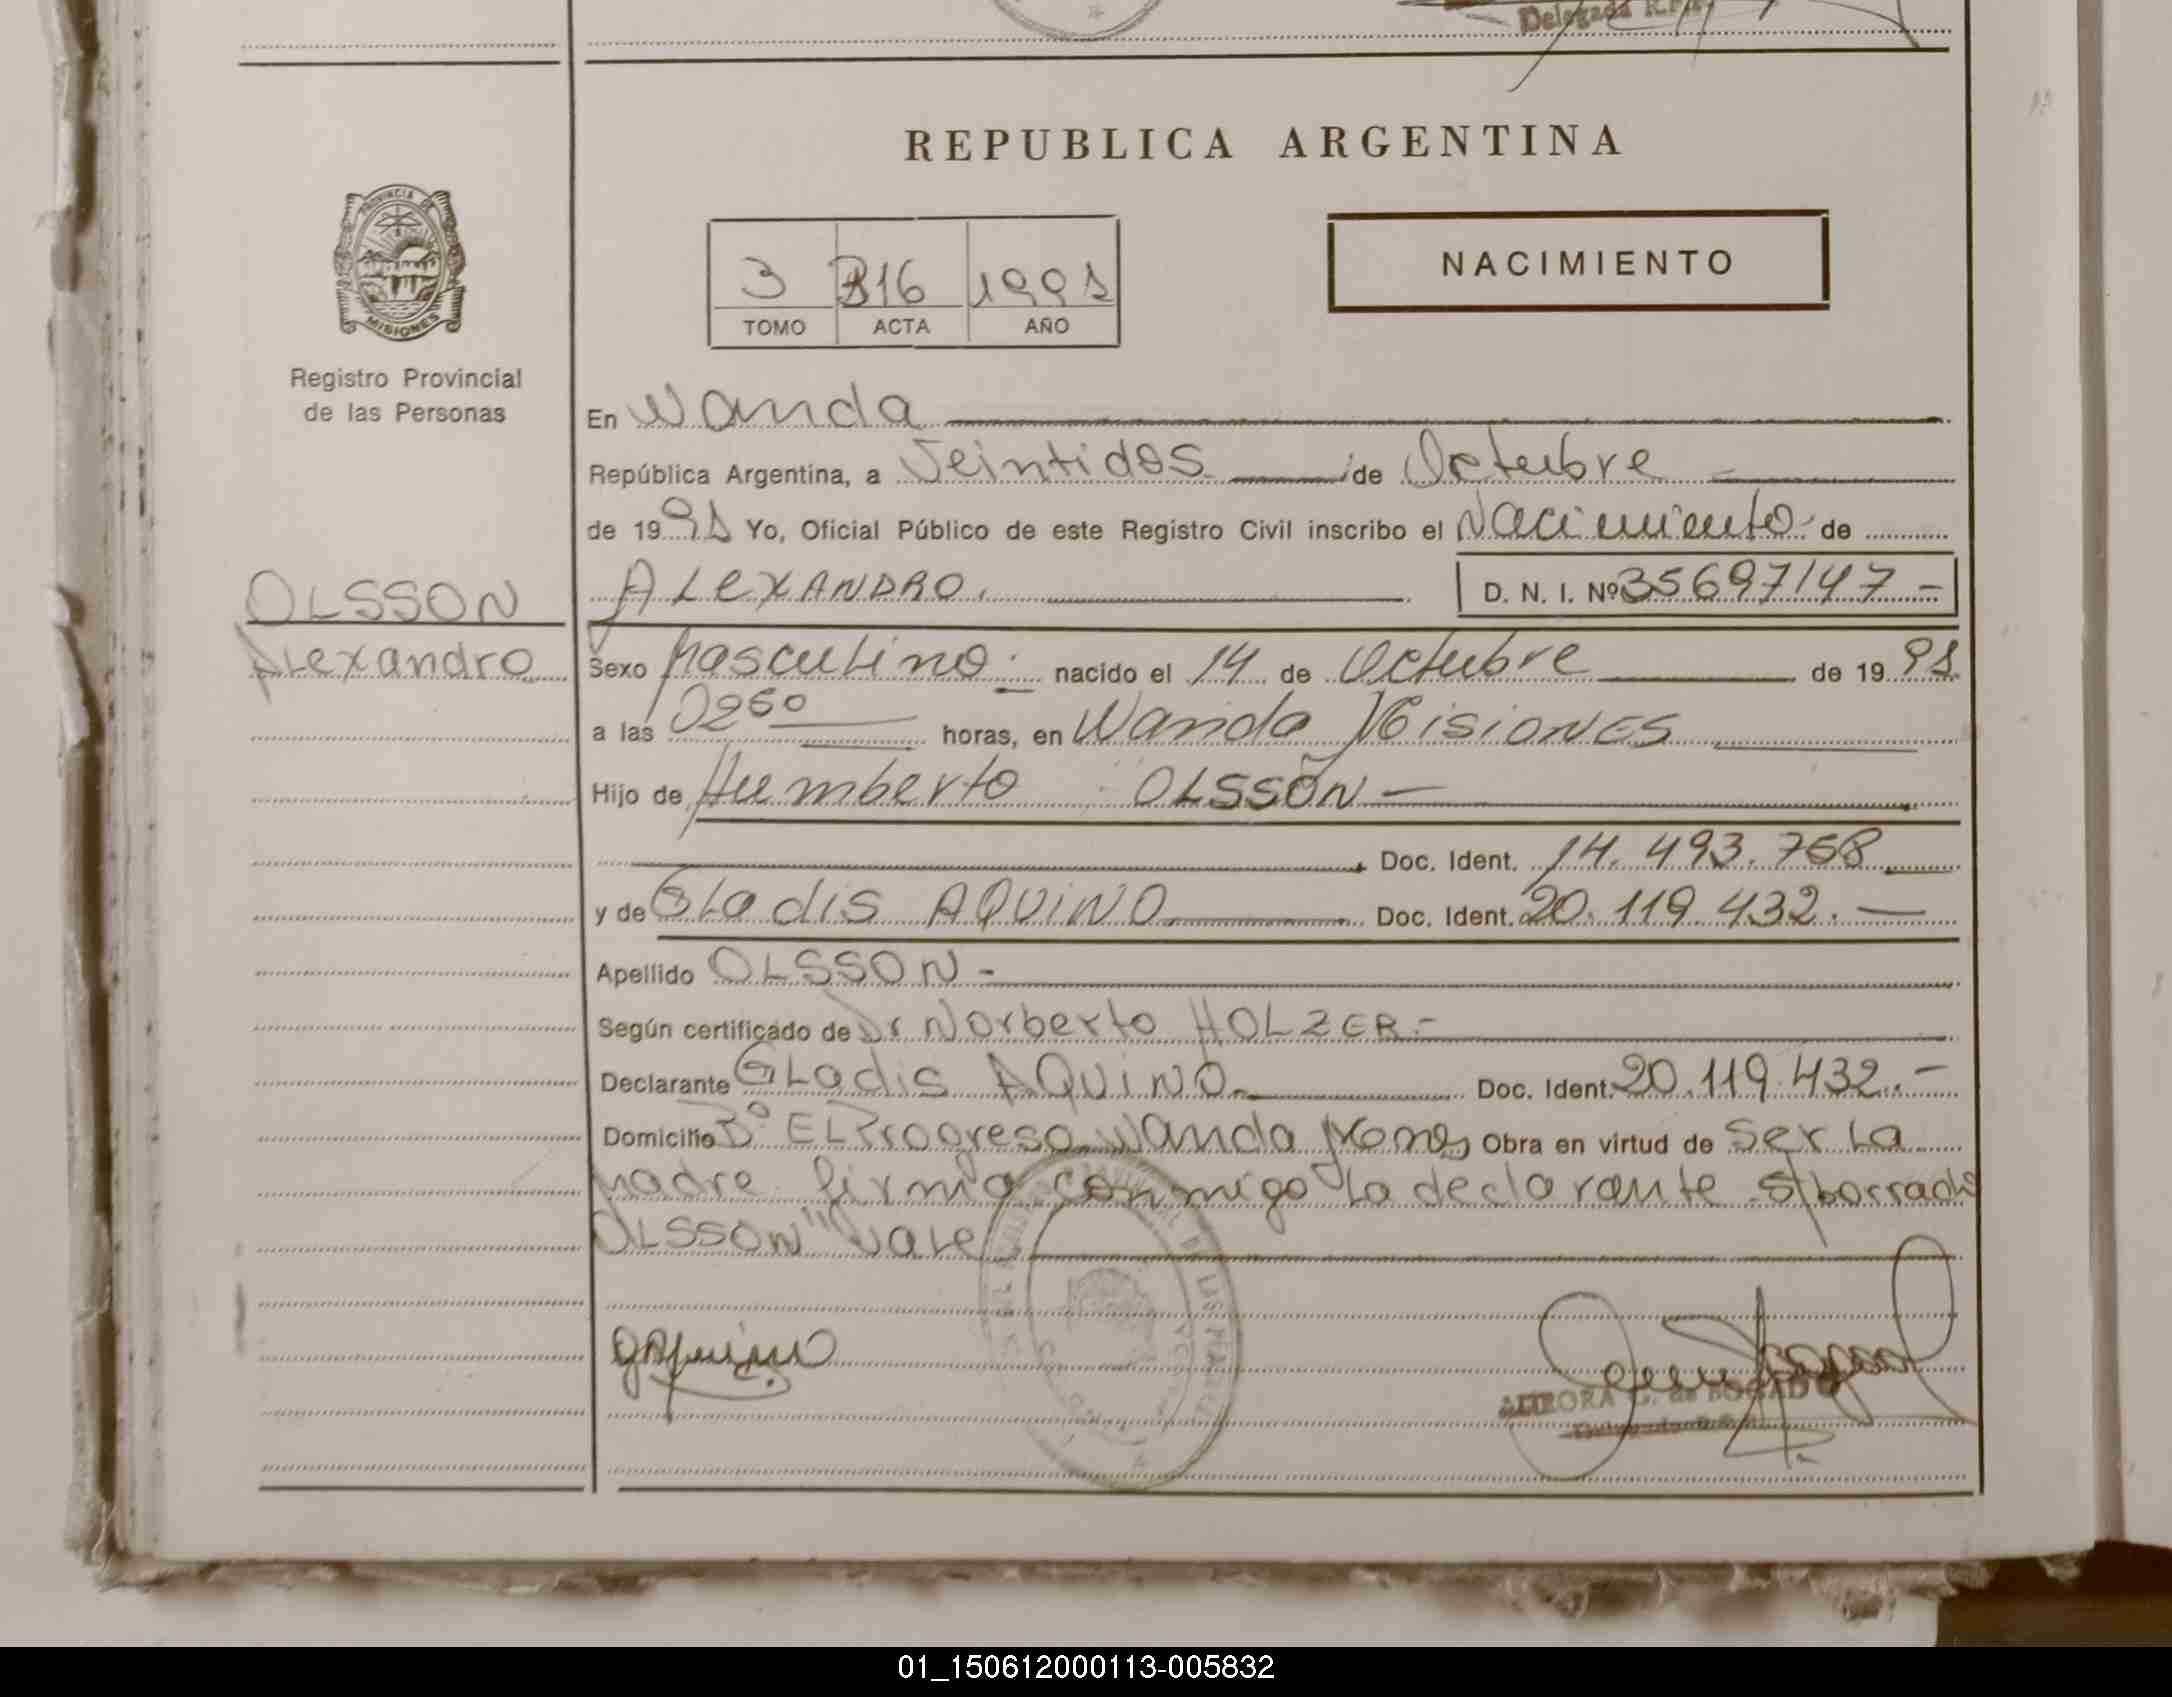 Delegada R.P.P.
REPUBLICA ARGENTINA
PROVINCIA DE
MISIONES
Registro Provincial
de las Personas
3 316 1991
TOMO ACTA AÑO
NACIMIENTO
En Wanda
República Argentina, a Veintidos de Octubre
de 1991 Yo, Oficial Público de este Registro Civil inscribo el Nacimiento de
ALEXANDRO. D. N. I. Nº 35697147 -
OLSSON
Alexandro
Sexo Masculino. nacido el 14 de Octubre de 1991
a las horas, en Wanda Misiones
Hijo de Humberto OLSSON -
Doc. Ident. 14.493.768
y de Gladis AQUINO Doc. Ident. 20.119.432. -
Apellido OLSSON -
Según certificado de Dr Norberto HOLZER -
Declarante Gladis AQUINO Doc. Ident. 20.119.432. -
Domicilio Bº El Progreso Wanda Mones Obra en virtud de ser la
Madre firma conmigo la declarante s/borrado
OLSSON" Vale
AURORA C. de BOGADO
01_150612000113-005832